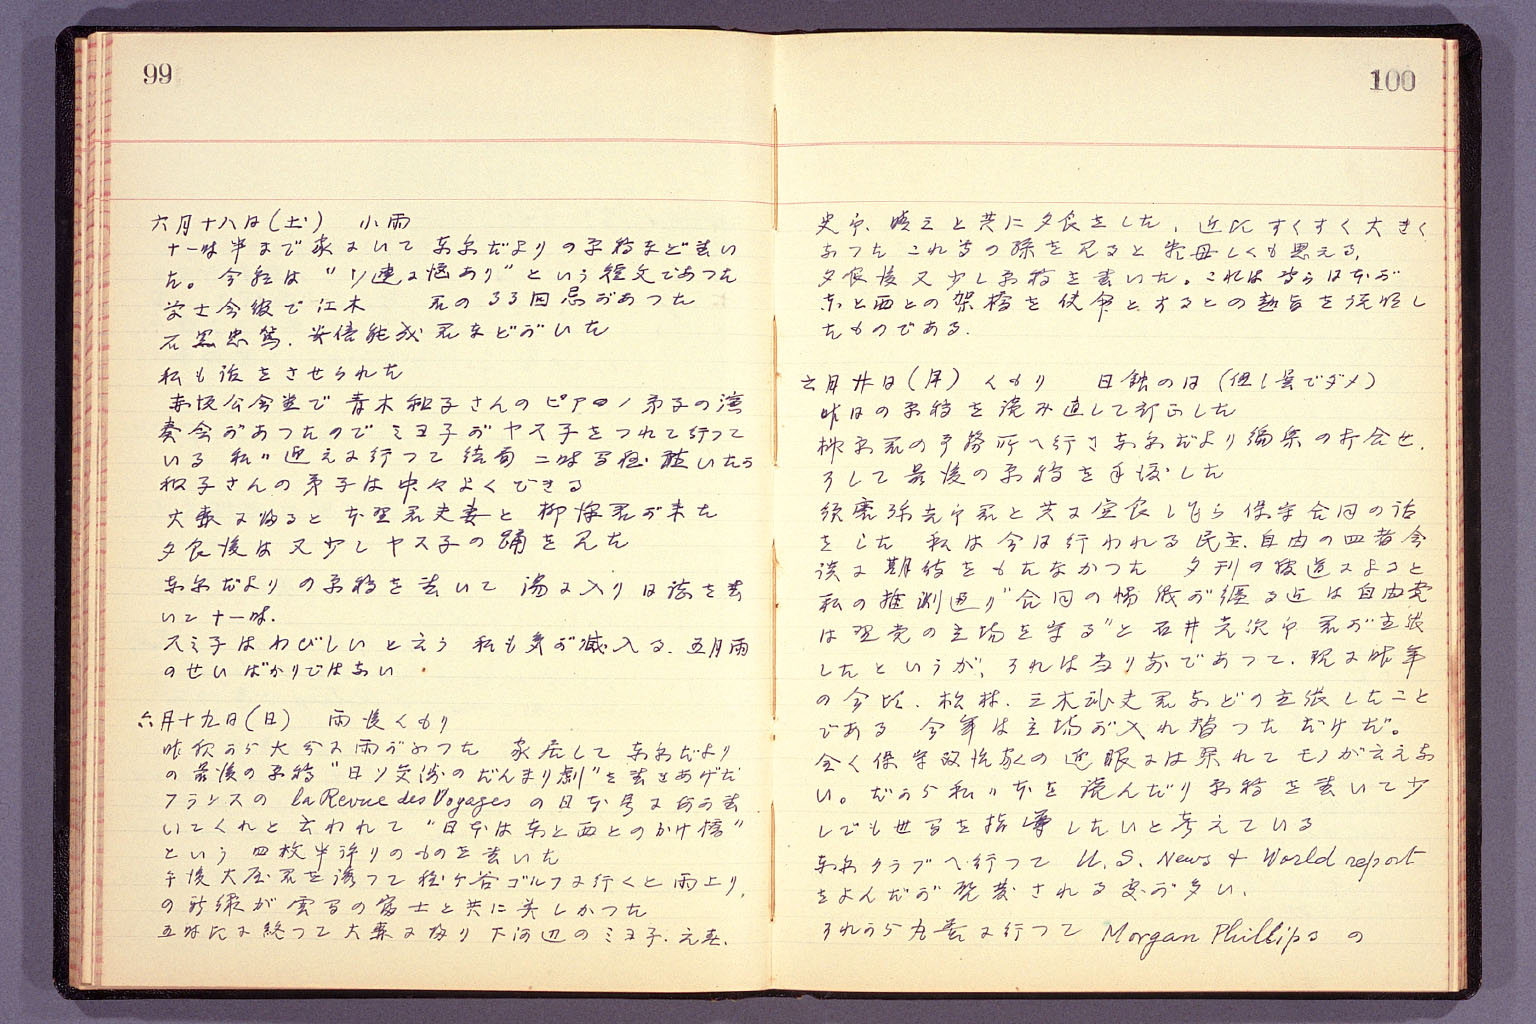 99
六月十八日(土) 小雨
十一時半まで家にいて 東京だよりの原稿など書い
た。今私は "ソ連に悩あり" という短文であつた
学士会館で江木 君の 回忌があつた
石黒忠篤、安倍能成君などがいた
私も話をさせられた
赤坂公会堂で 青木和子さんのピアノ弟子の演
奏会があつたので ミヨ子がヤス子をつれて行つて
いる 私は迎えに行つて 結局 二時間程聴いたら
和子さんの弟子は中々よくできる
大森に帰ると 夫妻と 柳澤君が来た
夕食後は又少しヤス子の踊を見た
東京だよりの原稿を書いて 湯に入り日誌を書
いて十一時.
スミ子はわびしいと云う 私も気が滅入る. 五月雨
のせいばかりではない.
六月十九日(日) 雨後くもり
昨夜から大分に雨がふつた 家居して東京だより
の最後の原稿"日ソ交渉のだんまり劇"を書きあげた
フランスの la Revue des Voyages の日本号に何か書
いてくれと云われて "日本は東と西とのかけ橋"
という四枚半許りのものを書いた
午後大屋君を誘つて程ケ谷ゴルフに行くと雨上り,
の新緑が雲間の富士と共に美しかつた
五時頃に終つて大森に帰り 下河辺のミヨ子、元喜、
100
と共に夕食をした. 近頃すくすく大きく
なつたこれ等の孫を見ると 思える.
夕食後又少し原稿を書いた。これは 日本が
東と西との架橋を使命とするとの趣旨を説明し
たものである.
六月廿日(月) くもり 日蝕の日 (但し曇でダメ)
昨日の原稿を読み直して訂正した
君の事務所へ行き東京だより編集の打合せ,
そして最後の原稿を手渡した
須磨弥吉郎君と共に食し乍ら 保守合同の話
をした 私は今日行われる民主、自由の四者会
談に期待をもたなかつた 夕刊の報道によると
私の推測通り"合同の情勢が纒る迄は自由党
は野党の立場を守る"と 石井光次郎君が主張
したというが、それは当り前であつて、現に昨年
の今頃、松村、三木武夫君などの主張したこと
である 今年は立場が入れ替つただけだ。
全く保守政治家の近眼には呆れてモノが云えな
い。だから私は本を読んだり原稿を書いて少
しでも世間を指導したいと考えている
東京クラブへ行つて U.S. News & World report
をよんだが 啓発される処が多い.
それから丸善に行つて Morgan Phillips の